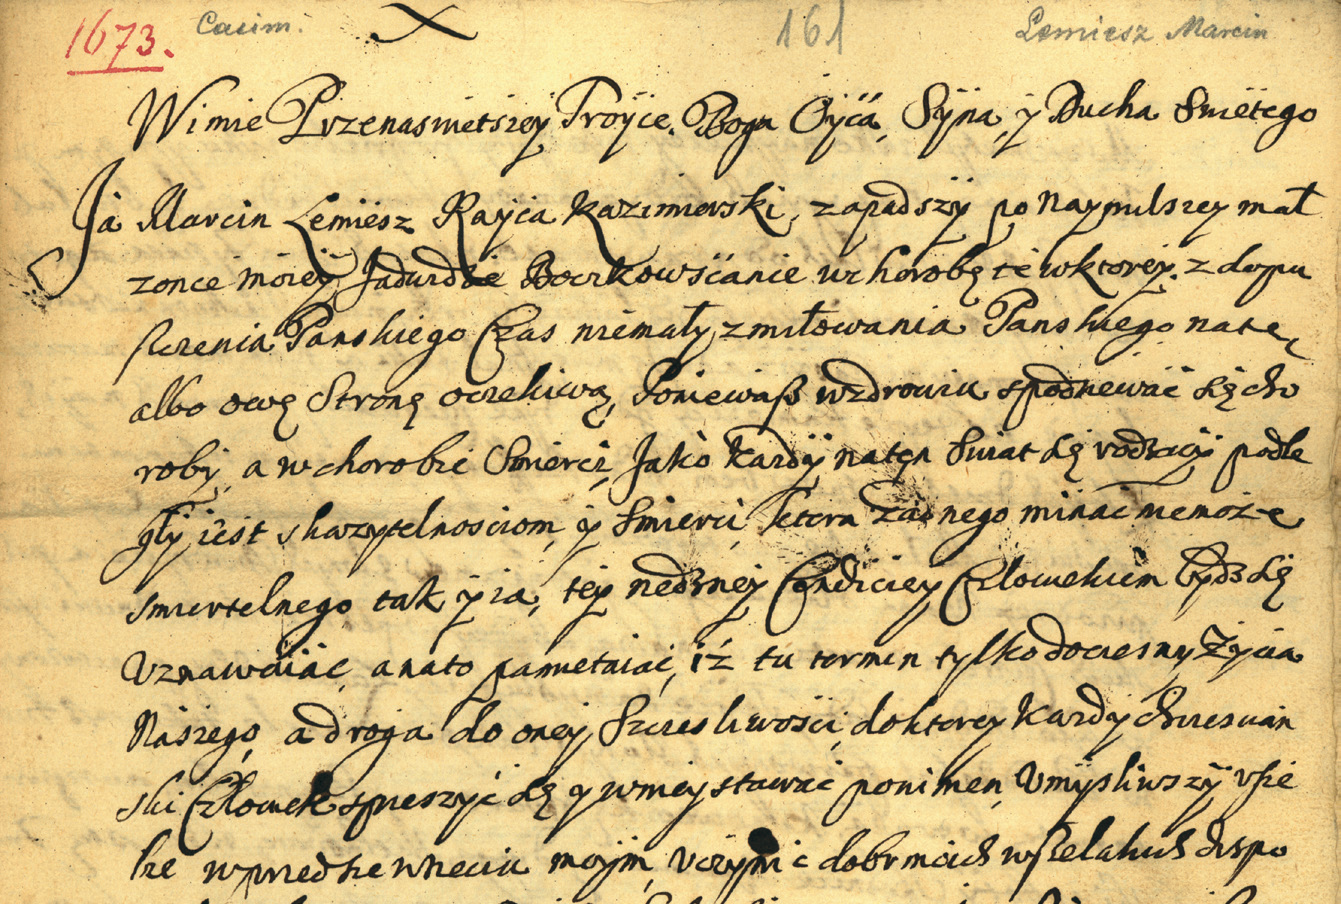 1673. Casim. 161 Lemiesz Marcin
W imie Przenaswietszey Troyce. Boga Oyca, Syna, y Ducha Swiętego
Ja Marcin Lemiesz Rayca Kazimierski, zapadszy po naymilszey mał
zonce moiey w chorobę te w ktorey. z dopu
szczenia Panskiego Czas niemały, z miłowania Panskiego na tę,
albo owę Stronę oczekiwą, Poniewaß w zdrowiu spodziewać się cho
roby, a w chorobie Smierci, Jako kazdy na ten Swiat się rodzący podle
gły iest skazytelnosciom, y Smierci, ktera zadnego minąć niemoze
smiertelnego tak y ia, tey nedzney Condiciey Człowiekiem bydz się
Uznawaiąc, a na to pamietaiąc, iż tu termin tylko doczesny Życia
Naszego, a droga do oney Szczesliwosci, do ktorey kazdy chrzescian
ski Człowiek spieszyć się y ponim en, Umysliwszy
w przedsiewzieciu moym, uczynić dispo